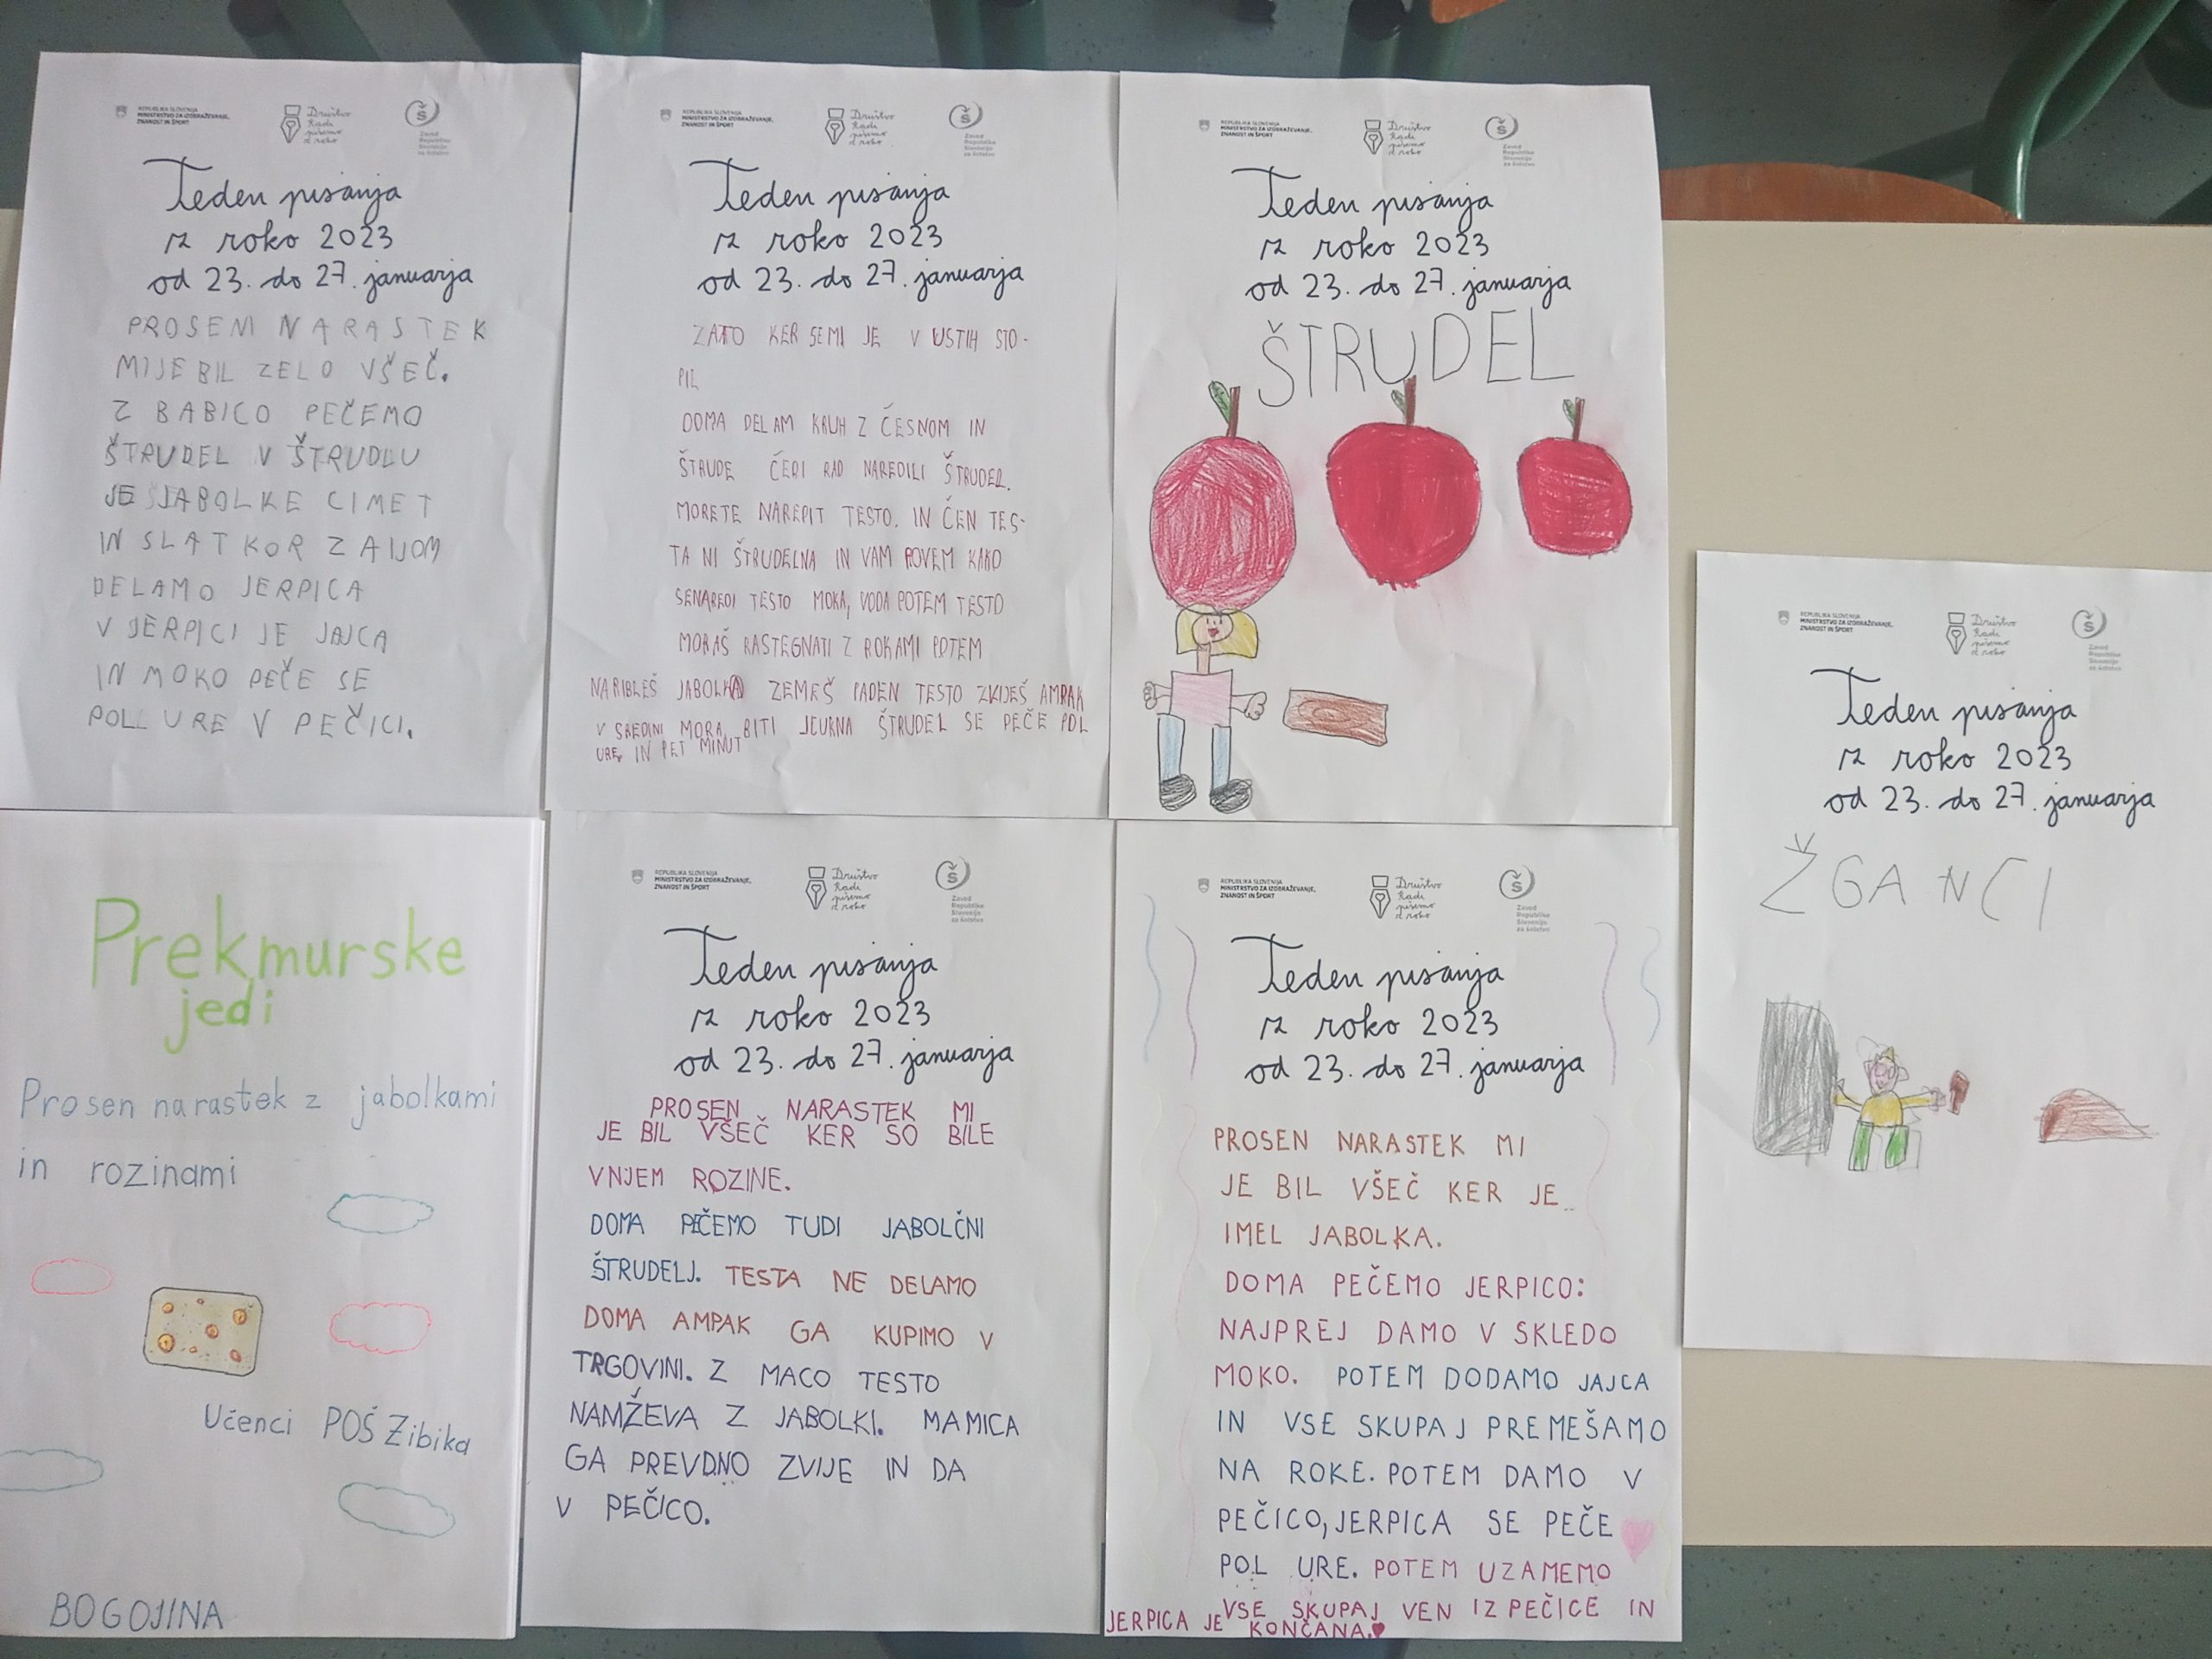 REPUBLIKA SLOVENIJA
MINISTRSTVO ZA IZOBRAŽEVANJE,
ZNANOST IN ŠPORT
Društvo
Radi
pišemo
z roko
Zavod
Republike
Slovenije
za šolstvo
Teden pisanja
z roko 2023
od 23. do 27. januarja
PROSEN NARASTEK
MIJE BIL ZELO VŠEČ.
Z BABICO PEČEMO
ŠTRUDEL V ŠTRUDLU
JE JABOLKE CIMET
IN SLATKOR ZAIJOM
DELAMO JERPICA
V JERPICI JE JAJCA
IN MOKO PEČE SE
POL URE V PEČICI.
REPUBLIKA SLOVENIJA
MINISTRSTVO ZA IZOBRAŽEVANJE,
ZNANOST IN ŠPORT
Društvo
Radi
pišemo
z roko
Zavod
Republike
Slovenije
za šolstvo
Teden pisanja
z roko 2023
od 23. do 27. januarja
ZATO KER SEMI JE V USTIH STO-
PIL
DOMA DELAM KRUH Z ČESNOM IN
ŠTRUDE ČEBI RAD NAREDILI ŠTRUDEL.
MORETE NAREDIT TESTO. IN ČEN TES-
TA NI ŠTRUDELNA IN VAM POVEM KAKO
SENAREDI TESTO MOKA, VODA POTEM TESTO
MORAŠ RASTEGNATI Z ROKAMI POTEM
NARIBLEŠ JABOLKA ZEMEŠ PADEN TESTO ZVIJEŠ AMPAK
V SREDINI MORA BITI ŠTRUDEL SE PEČE POL
URE IN PET MINUT
REPUBLIKA SLOVENIJA
MINISTRSTVO ZA IZOBRAŽEVANJE,
ZNANOST IN ŠPORT
Društvo
Radi
pišemo
z roko
Zavod
Republike
Slovenije
za šolstvo
Teden pisanja
z roko 2023
od 23. do 27. januarja
ŠTRUDEL
REPUBLIKA SLOVENIJA
MINISTRSTVO ZA IZOBRAŽEVANJE,
ZNANOST IN ŠPORT
Društvo
Radi
pišemo
z roko
Zavod
Republike
Slovenije
za šolstvo
Teden pisanja
z roko 2023
od 23. do 27. januarja
ŽGANCI
Prekmurske
jedi
Prosen narastek z jabolkami
in rozinami
Učenci POŠ Zibika
BOGOJINA
REPUBLIKA SLOVENIJA
MINISTRSTVO ZA IZOBRAŽEVANJE,
ZNANOST IN ŠPORT
Društvo
Radi
pišemo
z roko
Zavod
Republike
Slovenije
za šolstvo
Teden pisanja
z roko 2023
od 23. do 27. januarja
PROSEN NARASTEK MI
JE BIL VŠEČ KER SO BILE
VNJEM ROZINE.
DOMA PEČEMO TUDI JABOLČNI
ŠTRUDELJ. TESTA NE DELAMO
DOMA AMPAK GA KUPIMO V
TRGOVINI. Z MACO TESTO
NAMŽEVA Z JABOLKI. MAMICA
GA PREVDNO ZVIJE IN DA
V PEČICO.
REPUBLIKA SLOVENIJA
MINISTRSTVO ZA IZOBRAŽEVANJE,
ZNANOST IN ŠPORT
Društvo
Radi
pišemo
z roko
Zavod
Republike
Slovenije
za šolstvo
Teden pisanja
z roko 2023
od 23. do 27. januarja
PROSEN NARASTEK MI
JE BIL VŠEČ KER JE
IMEL JABOLKA.
DOMA PEČEMO JERPICO:
NAJPREJ DAMO V SKLEDO
MOKO. POTEM DODAMO JAJCA
IN VSE SKUPAJ PREMEŠAMO
NA ROKE. POTEM DAMO V
PEČICO, JERPICA SE PEČE
POL URE. POTEM UZAMEMO
VSE SKUPAJ VEN IZ PEČICE IN
JERPICA JE KONČANA.